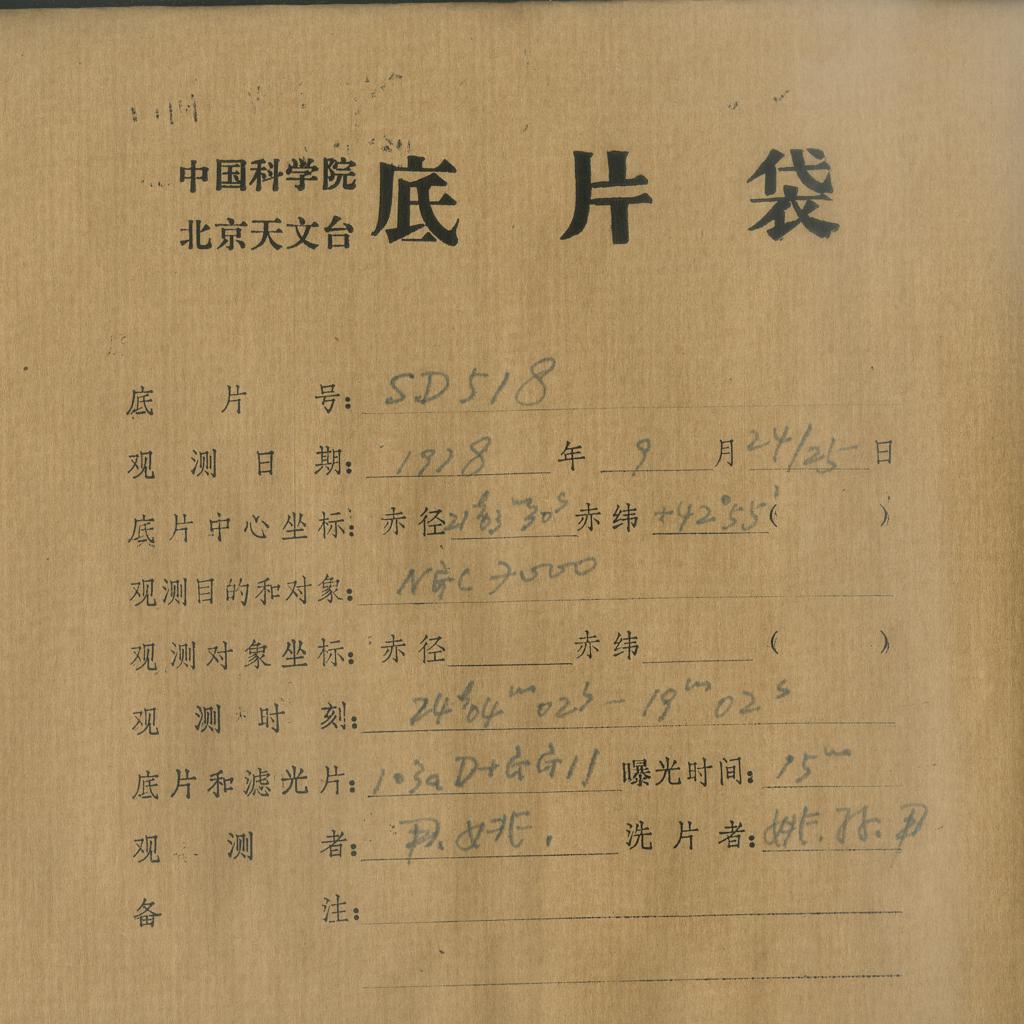 中国科学院
北京天文台
底片袋
底片号: SD518
观测日期: 1978 年 9 月 24/25 日
底片中心坐标: 赤径 21h03m30s 赤纬 +42°55′ ( )
观测目的和对象: NGC 7000
观测对象坐标: 赤径 赤纬 ( )
观测时刻: 24h04m02s - 19m02s
底片和滤光片: 103aD+GG11 曝光时间: 15m
观测者: 尹.姚. 洗片者: 姚.孙.尹
备注: